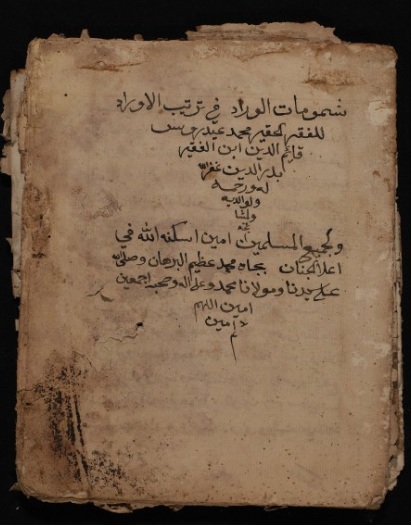 شمومات الوراد في ترتيب الاوراد
للفقير الحقير محمد عيدروس
قائم الدين ابن الفقير
بدر الدين غفر الله
له ورحمه
ولوالديه
ولنا
ولجميع المسلمين امين اسكنه الله في
اعلا الجنان بجاه محمد عظيم البرهان وصلى الله
على سيدنا ومولانا محمد وعلى اله وصحبه اجمعين
امين اللهم
امين
م